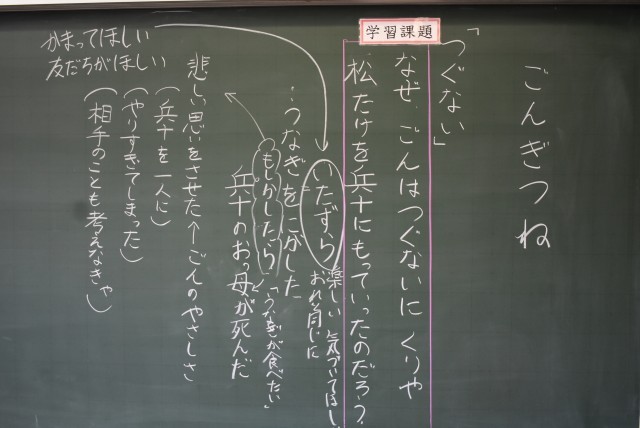 ごんぎつね
「つぐない」
学習課題
なぜ、ごんはつぐないに くりや
松たけを兵十にもっていったのだろう？
いたずら
楽しい 気づいてほしい
おれと同じに
…うなぎをにがした
もしかしたら
「うなぎが食べたい」
兵十のおっ母が死んだ
悲しい思いをさせた←ごんのやさしさ
(兵十を一人に)
(やりすぎてしまった)
(相手のことも考えなきゃ)
かまってほしい
友だちがほしい